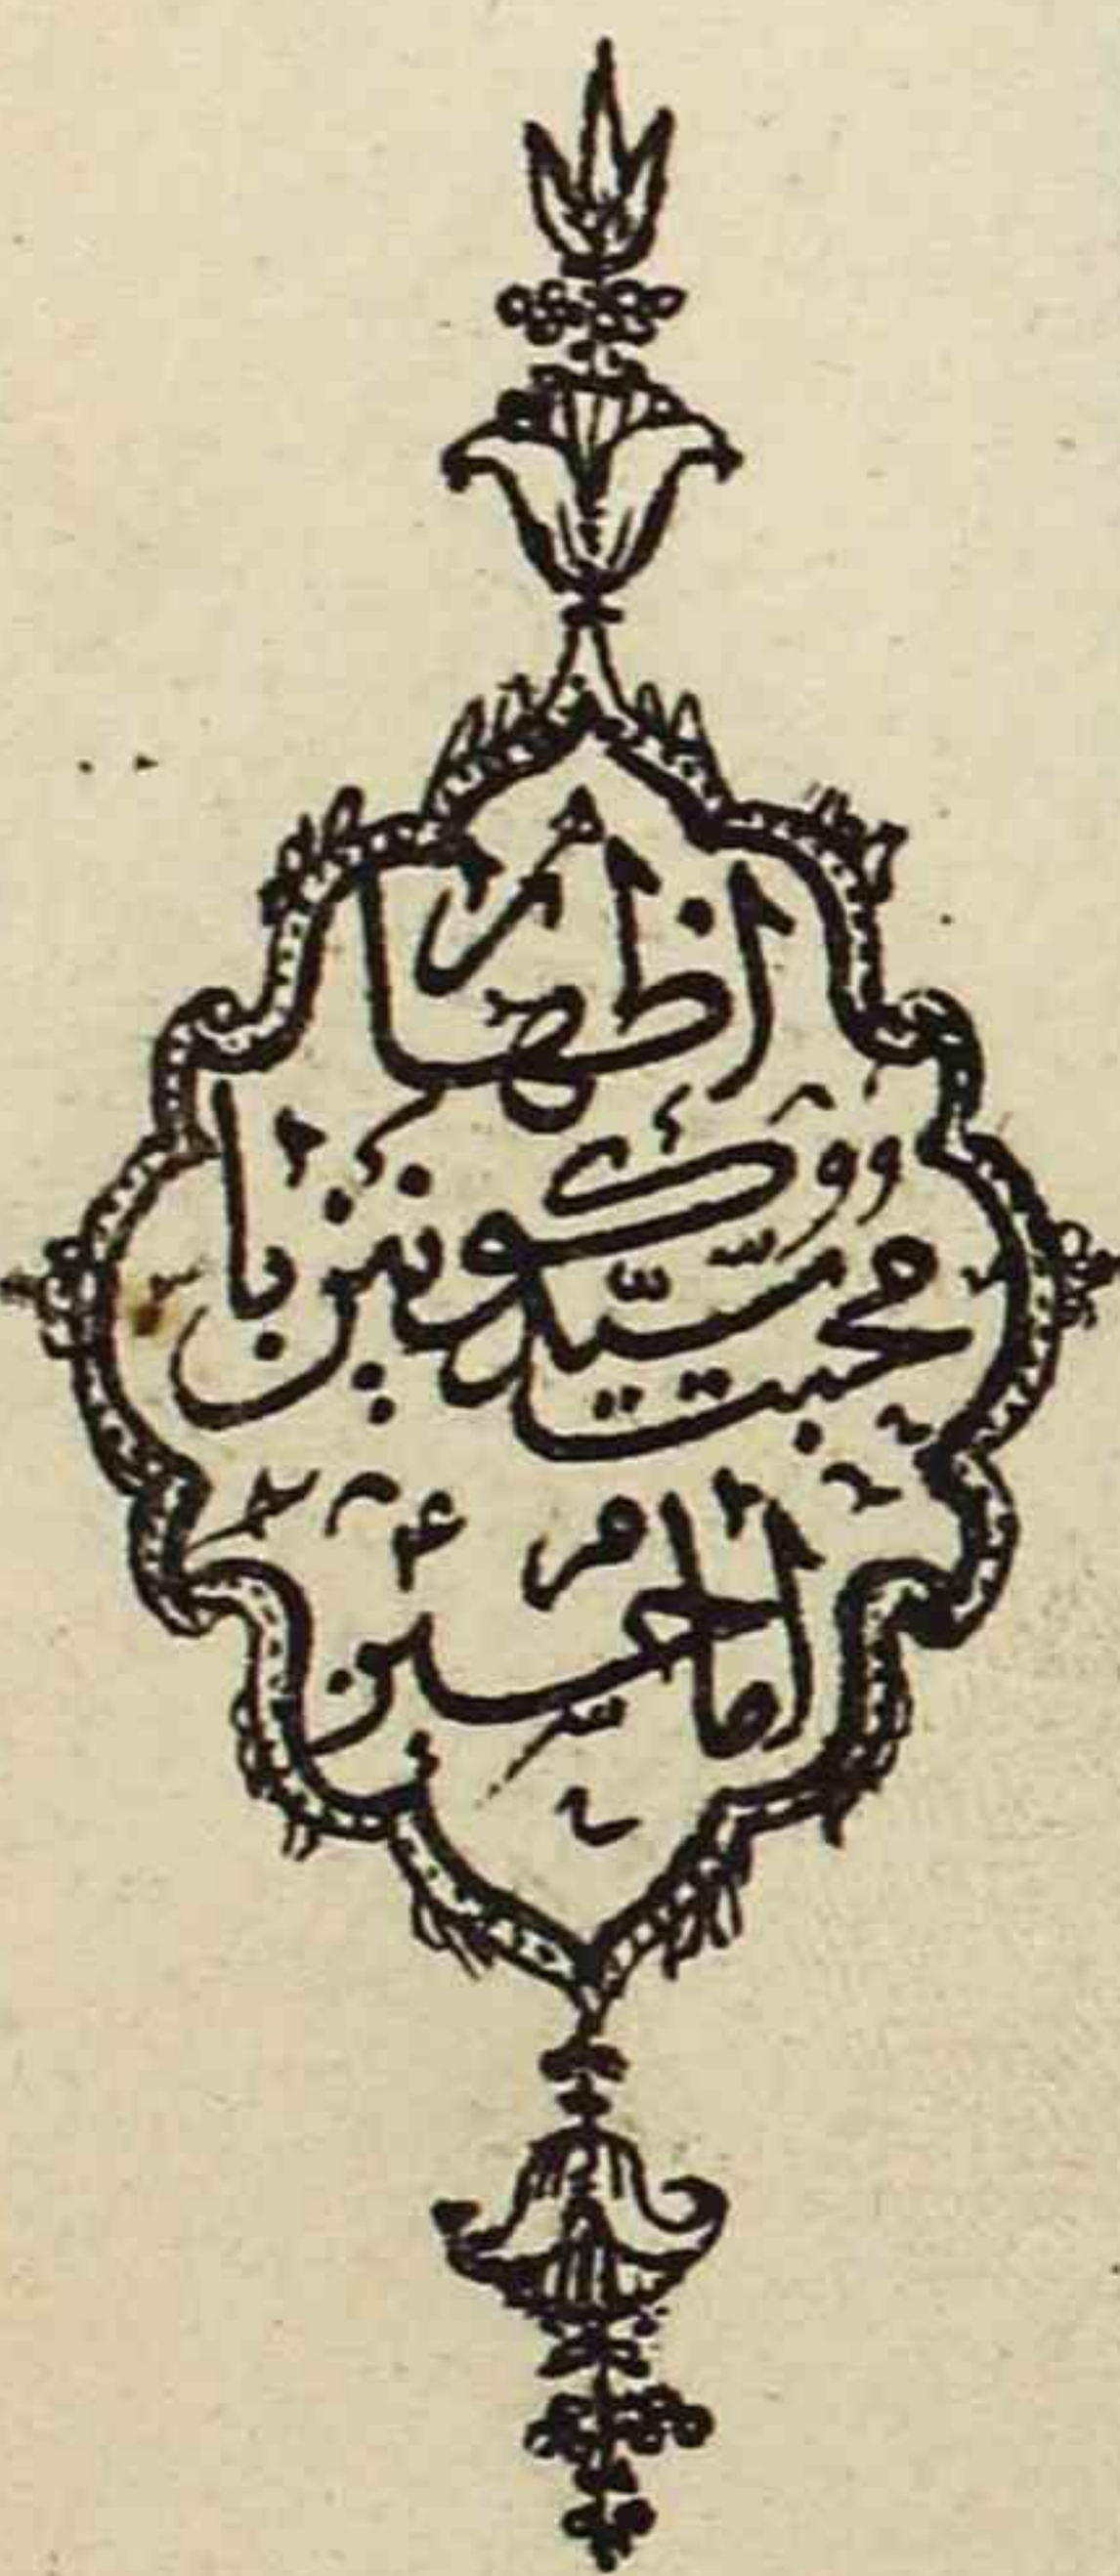 اظهار
محبت سيّد كونين با
امام حسين